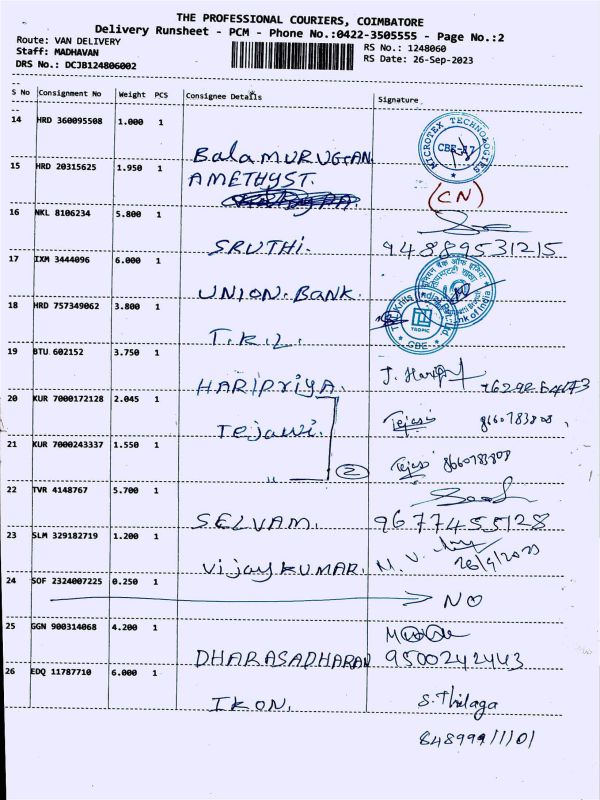 THE PROFESSIONAL COURIERS, COIMBATORE
Delivery Runsheet - PCM - Phone No.:0422-3505555 - Page No.:2
Route: VAN DELIVERY
RS No.: 1248060
Staff: MADHAVAN
RS Date: 26-Sep-2023
DRS No.: DCJB124806002
S No Consignment No Weight PCS Consignee Details Signature
14 HRD 360095508 1.000 1
BalaMURUGAN
MICROTEX TECHNOLOGIES
15 HRD 20315625 1.950 1
AMETHYST.
(CN)
16 NKL 8106234 5.800 1
SRUTHI. 94889531215
17 IXM 3444096 6.000 1
UNION. BANK.
18 HRD 757349062 3.800 1
T.K.L.
TROPIC
CBE
19 BTU 602152 3.750 1
HARIPriYA.
20 KUR 7000172128 2.045 1
Tejawi. Tejasi 8660783808,
21 KUR 7000243337 1.550 1
" (2) Tejasi 8660783808
22 TVR 4148767 5.700 1
SELVAM. 9677455128
23 SLM 329182719 1.200 1
VijayKUMAR. M. V.
24 SOF 2324007225 0.250 1
NO
25 GGN 900314068 4.200 1
DHARASADHARAN 9500242443
26 EDQ 11787710 6.000 1
IKON. S. Thilaga